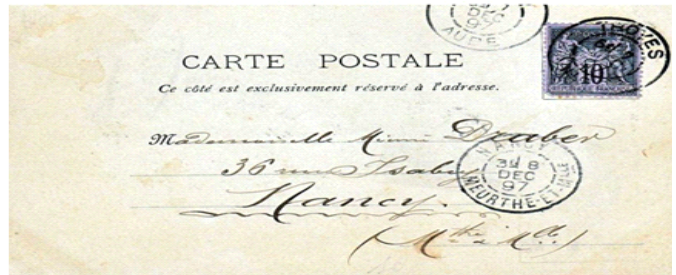 DEC
97
AUBE
TROYES
10
CARTE POSTALE
Ce côté est exclusivement réservé à l'adresse.
Mademoiselle Mimi Draber
36 rue Isabey
Nancy.
(Mthe & Mlle)
NANCY
8
DEC
97
MEURTHE-ET-MLLE